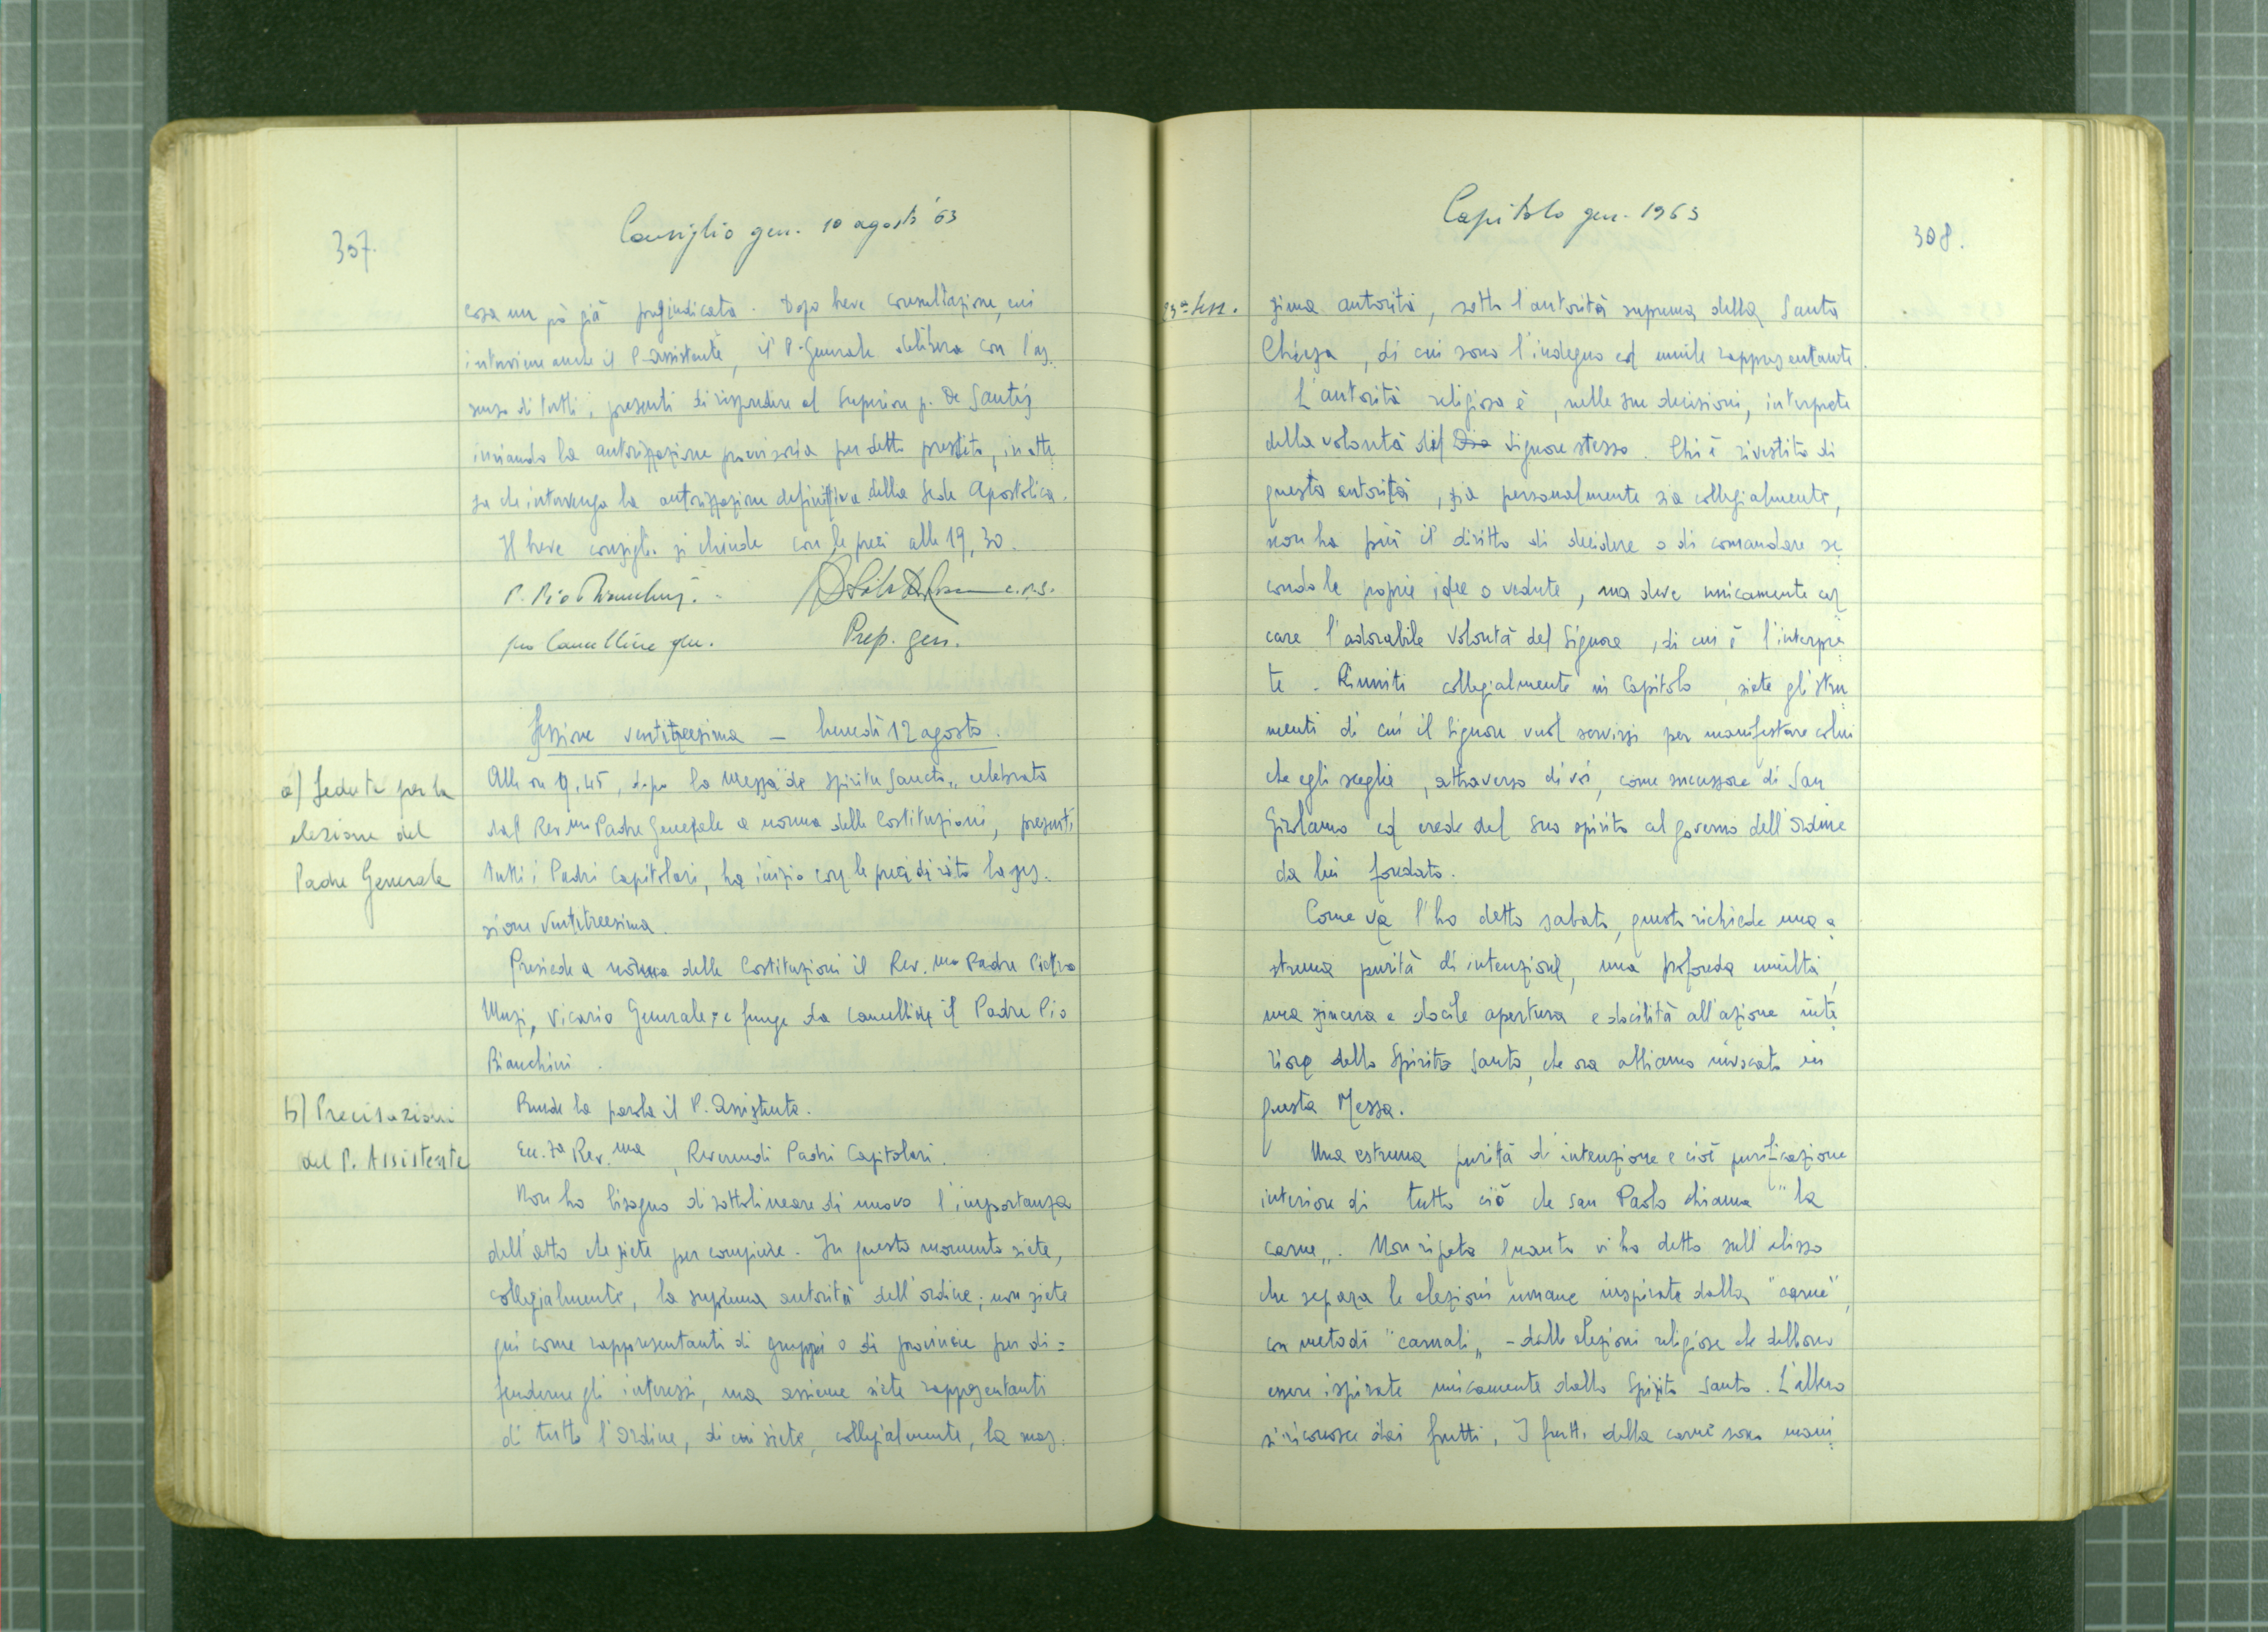 307.
Consiglio gen. 10 agosto '63
cosa un pò già pregiudicata. Dopo breve consultazione, cui
interviene anche il P. Assistente, il P. Generale delibera con l'as
senso di tutti i presenti di rispondere al Superiore p. De Santis
inviando la autorizzazione provvisoria per detto prestito, in atte
sa che intervenga la autorizzazione definitiva della Sede Apostolica.
Il breve consiglio si chiude con le preci alle 19,30.
P. Pio Bianchini
c.r.s.
pro Cancelliere gen.
Prep. gen.
Sessione ventitreesima - lunedì 12 agosto.
a) Seduta per la
elezione del
Padre Generale
Alle ore 9,45, dopo la Messa "de Spiritu Sancto" celebrata
dal Rev.mo Padre Generale a norma delle Costituzioni, presenti
tutti i Padri Capitolari, ha inizio con le preci di rito la ses-
sione ventitreesima.
Presiede a norma delle Costituzioni il Rev.mo Padre Pietro
Muzi, Vicario Generale; e funge da cancelliere il Padre Pio
Bianchini.
b) Precisazioni
del P. Assistente
Prende la parola il P. Assistente.
Ecc.za Rev.ma, Reverendi Padri Capitolari.
Non ho bisogno di sottolineare di nuovo l'importanza
dell'atto che siete per compiere. In questo momento siete,
collegialmente, la suprema autorità dell'ordine; non siete
qui come rappresentanti di gruppi o di provincie per di=
fenderne gli interessi, ma assieme siete rappresentanti
di tutto l'Ordine, di cui siete, collegialmente, la mas
Capitolo gen. 1963
308.
23ª sess.
sima autorità, sotto l'autorità suprema della Santa
Chiesa, di cui sono l'indegno ed umile rappresentante.
L'autorità religiosa è, nelle sue decisioni, interprete
della volontà del Dio Signore stesso. Chi è rivestito di
questa autorità, sia personalmente sia collegialmente,
non ha più il diritto di decidere o di comandare se
condo le proprie idee o vedute, ma deve unicamente cer
care l'adorabile Volontà del Signore, di cui è l'interpre
te. Riuniti collegialmente in Capitolo, siete gli stru
menti di cui il Signore vuol servirsi per manifestare colui
che egli sceglie, attraverso di voi, come successore di San
Girolamo ed erede del suo spirito al governo dell'Ordine
da lui fondato.
Come ve l'ho detto sabato, questo richiede una e
strema purità di intenzione, una profonda umiltà,
una sincera e docile apertura e docilità all'azione inte
riore dello Spirito Santo, che ora abbiamo invocato in
questa Messa.
Una estrema purità di intenzione e cioè purificazione
interiore di tutto ciò che San Paolo chiama "la
carne". Non ripeto quanto vi ho detto sull'abisso
che separa le elezioni umane inspirate dalla "carne",
con metodi "carnali" - dalle elezioni religiose che debbono
essere ispirate unicamente dallo Spirito Santo. L'albero
si riconosce dai frutti. I frutti della carne sono mani